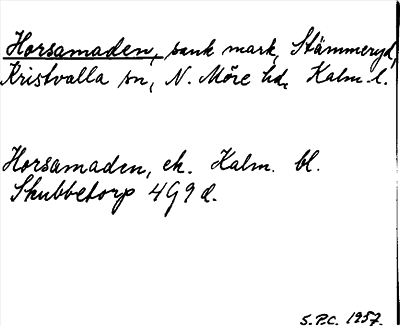 Horsamaden, sank mark, Stämmeryd,
Kristvalla sn, N. Möre hd, Kalm. l.
Horsamaden, ek. Kalm. bl.
Skubbetorp 4G9d.
S.P.C. 1957.